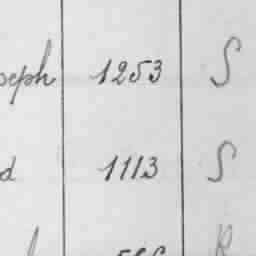 seph 1253 S
d 1113 S